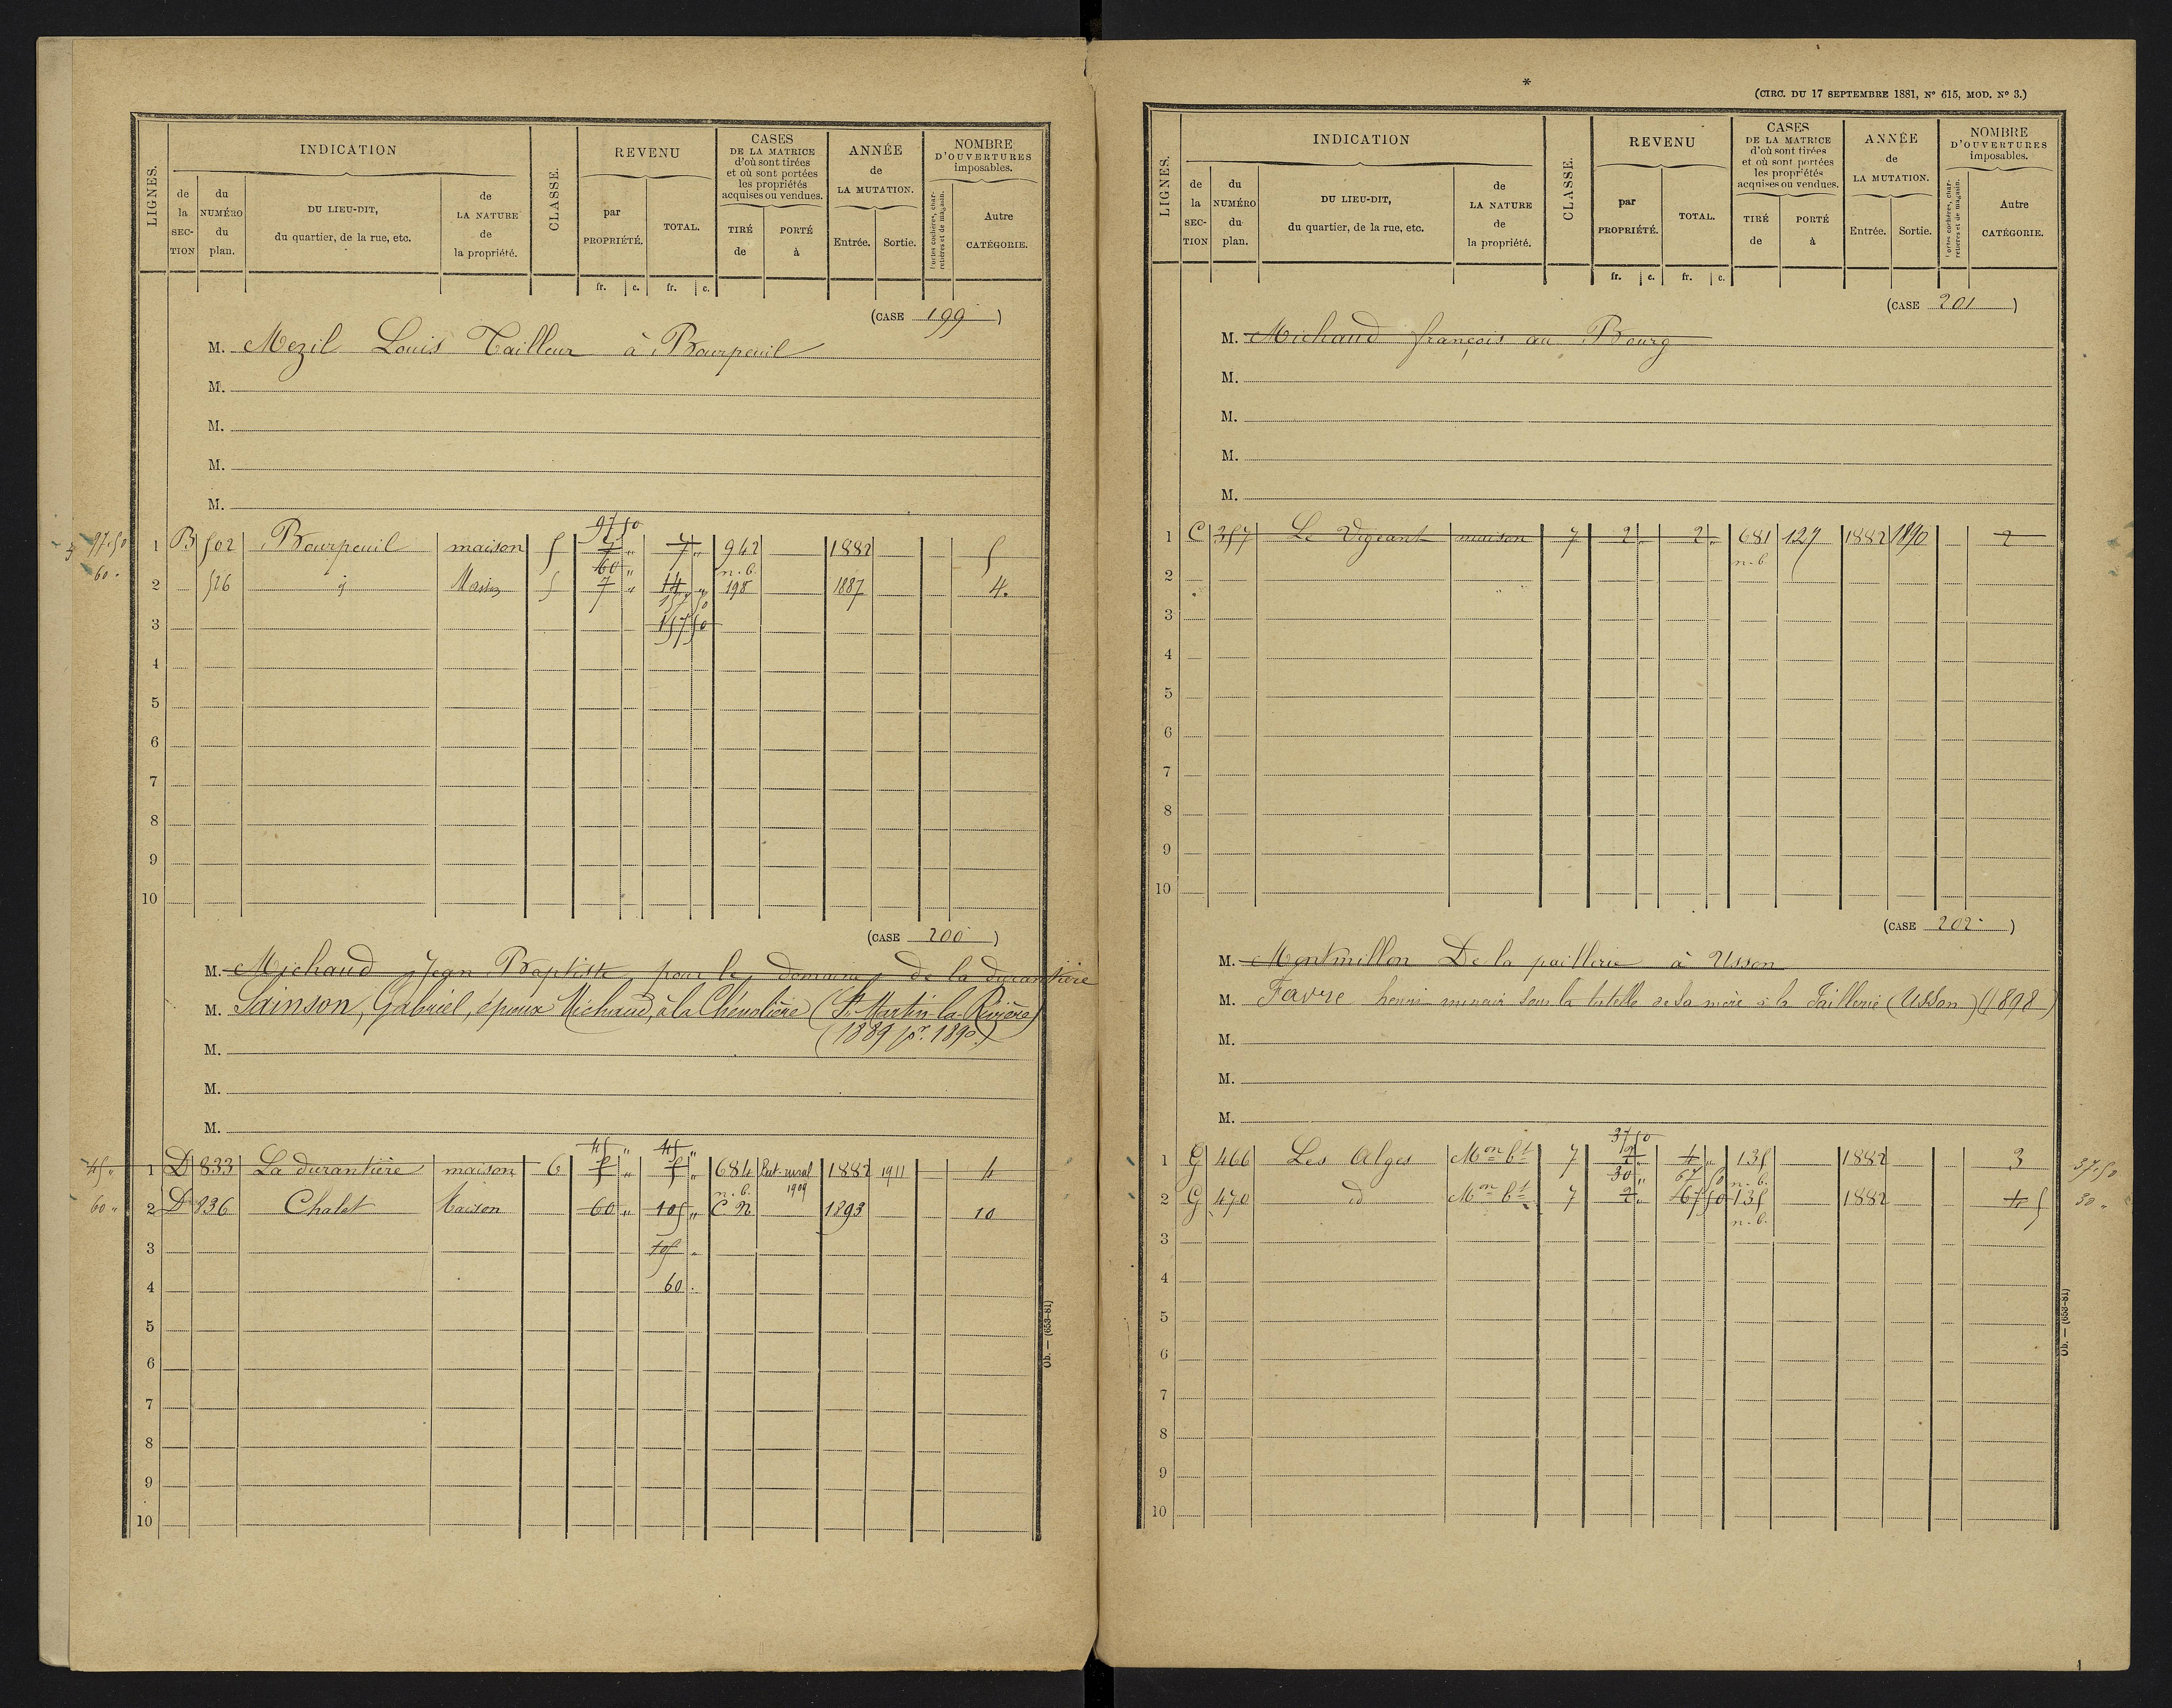 LIGNES.
INDICATION
CLASSE.
REVENU
CASES DE LA MATRICE d'où sont tirées et où sont portées les propriétés acquises ou vendues.
ANNÉE de LA MUTATION.
NOMBRE D'OUVERTURES imposables.
de la SEC-TION
du NUMÉRO du plan.
DU LIEU-DIT, du quartier, de la rue, etc.
de LA NATURE de la propriété.
par PROPRIÉTÉ.
TOTAL.
TIRÉ de
PORTÉ à
Entrée.
Sortie.
Portes cochères, charretières et de magasin.
Autre CATÉGORIE.
fr. c. fr. c.
(CASE 199)
M. Mezil Louis Tailleur à Bourpeuil
M.
M.
M.
M.
97 50
97.50 1 B 502 Bourpeuil maison 5 7 " 7 " 942 1882 5
60 " n.b.
60 " 2 526 id Maison 5 7 " 14 " 198 1887 4.
157 50
3 157 50
4
5
6
7
8
9
10
(CASE 200)
M. Michaud Jean Baptiste pour le domaine de la durantière
M. Sainson, Gabriel, époux Michaud, à la Chévolière (St Martin-la-Rivière)
(1889 pr. 1890.)
M.
M.
M.
45 " 45 "
45 " 1 D 833 La durantière maison 6 5 " 5 " 684 Bat. rural 1882 1911 4
n.b. 1909
60 " 2 D 836 Chalet Maison 60 " 105 " C N 1893 10
3 105 "
4 60 "
5
6
7
8
9
10
Ob. — (653-81)
*
(CIRC. DU 17 SEPTEMBRE 1881, N° 615, MOD. N° 3.)
LIGNES.
INDICATION
CLASSE.
REVENU
CASES DE LA MATRICE d'où sont tirées et où sont portées les propriétés acquises ou vendues.
ANNÉE de LA MUTATION.
NOMBRE D'OUVERTURES imposables.
de la SEC-TION
du NUMÉRO du plan.
DU LIEU-DIT, du quartier, de la rue, etc.
de LA NATURE de la propriété.
par PROPRIÉTÉ.
TOTAL.
TIRÉ de
PORTÉ à
Entrée.
Sortie.
Portes cochères, charretières et de magasin.
Autre CATÉGORIE.
fr. c. fr. c.
(CASE 201)
M. Michaud françois au Bourg
M.
M.
M.
M.
1 C 357 Le Vigeant maison 7 2 " 2 " 681 127 1882 1890 2
n.b.
2
3
4
5
6
7
8
9
10
(CASE 202)
M. Montmillon De la paillerie à Usson
M. Favre henri mineur sous la tutelle de sa mère à la Paillerie (Usson) (1898)
M.
M.
M.
37 50
1 G 466 Les Alges Mon bt 7 4 " 135 1882 3 37.50
30 " 67 50 n.b.
2 G 470 id Mon bt 7 2 " 67 50 135 1882 4 5 30 "
n.b.
3
4
5
6
7
8
9
10
Ob. — (653-81)